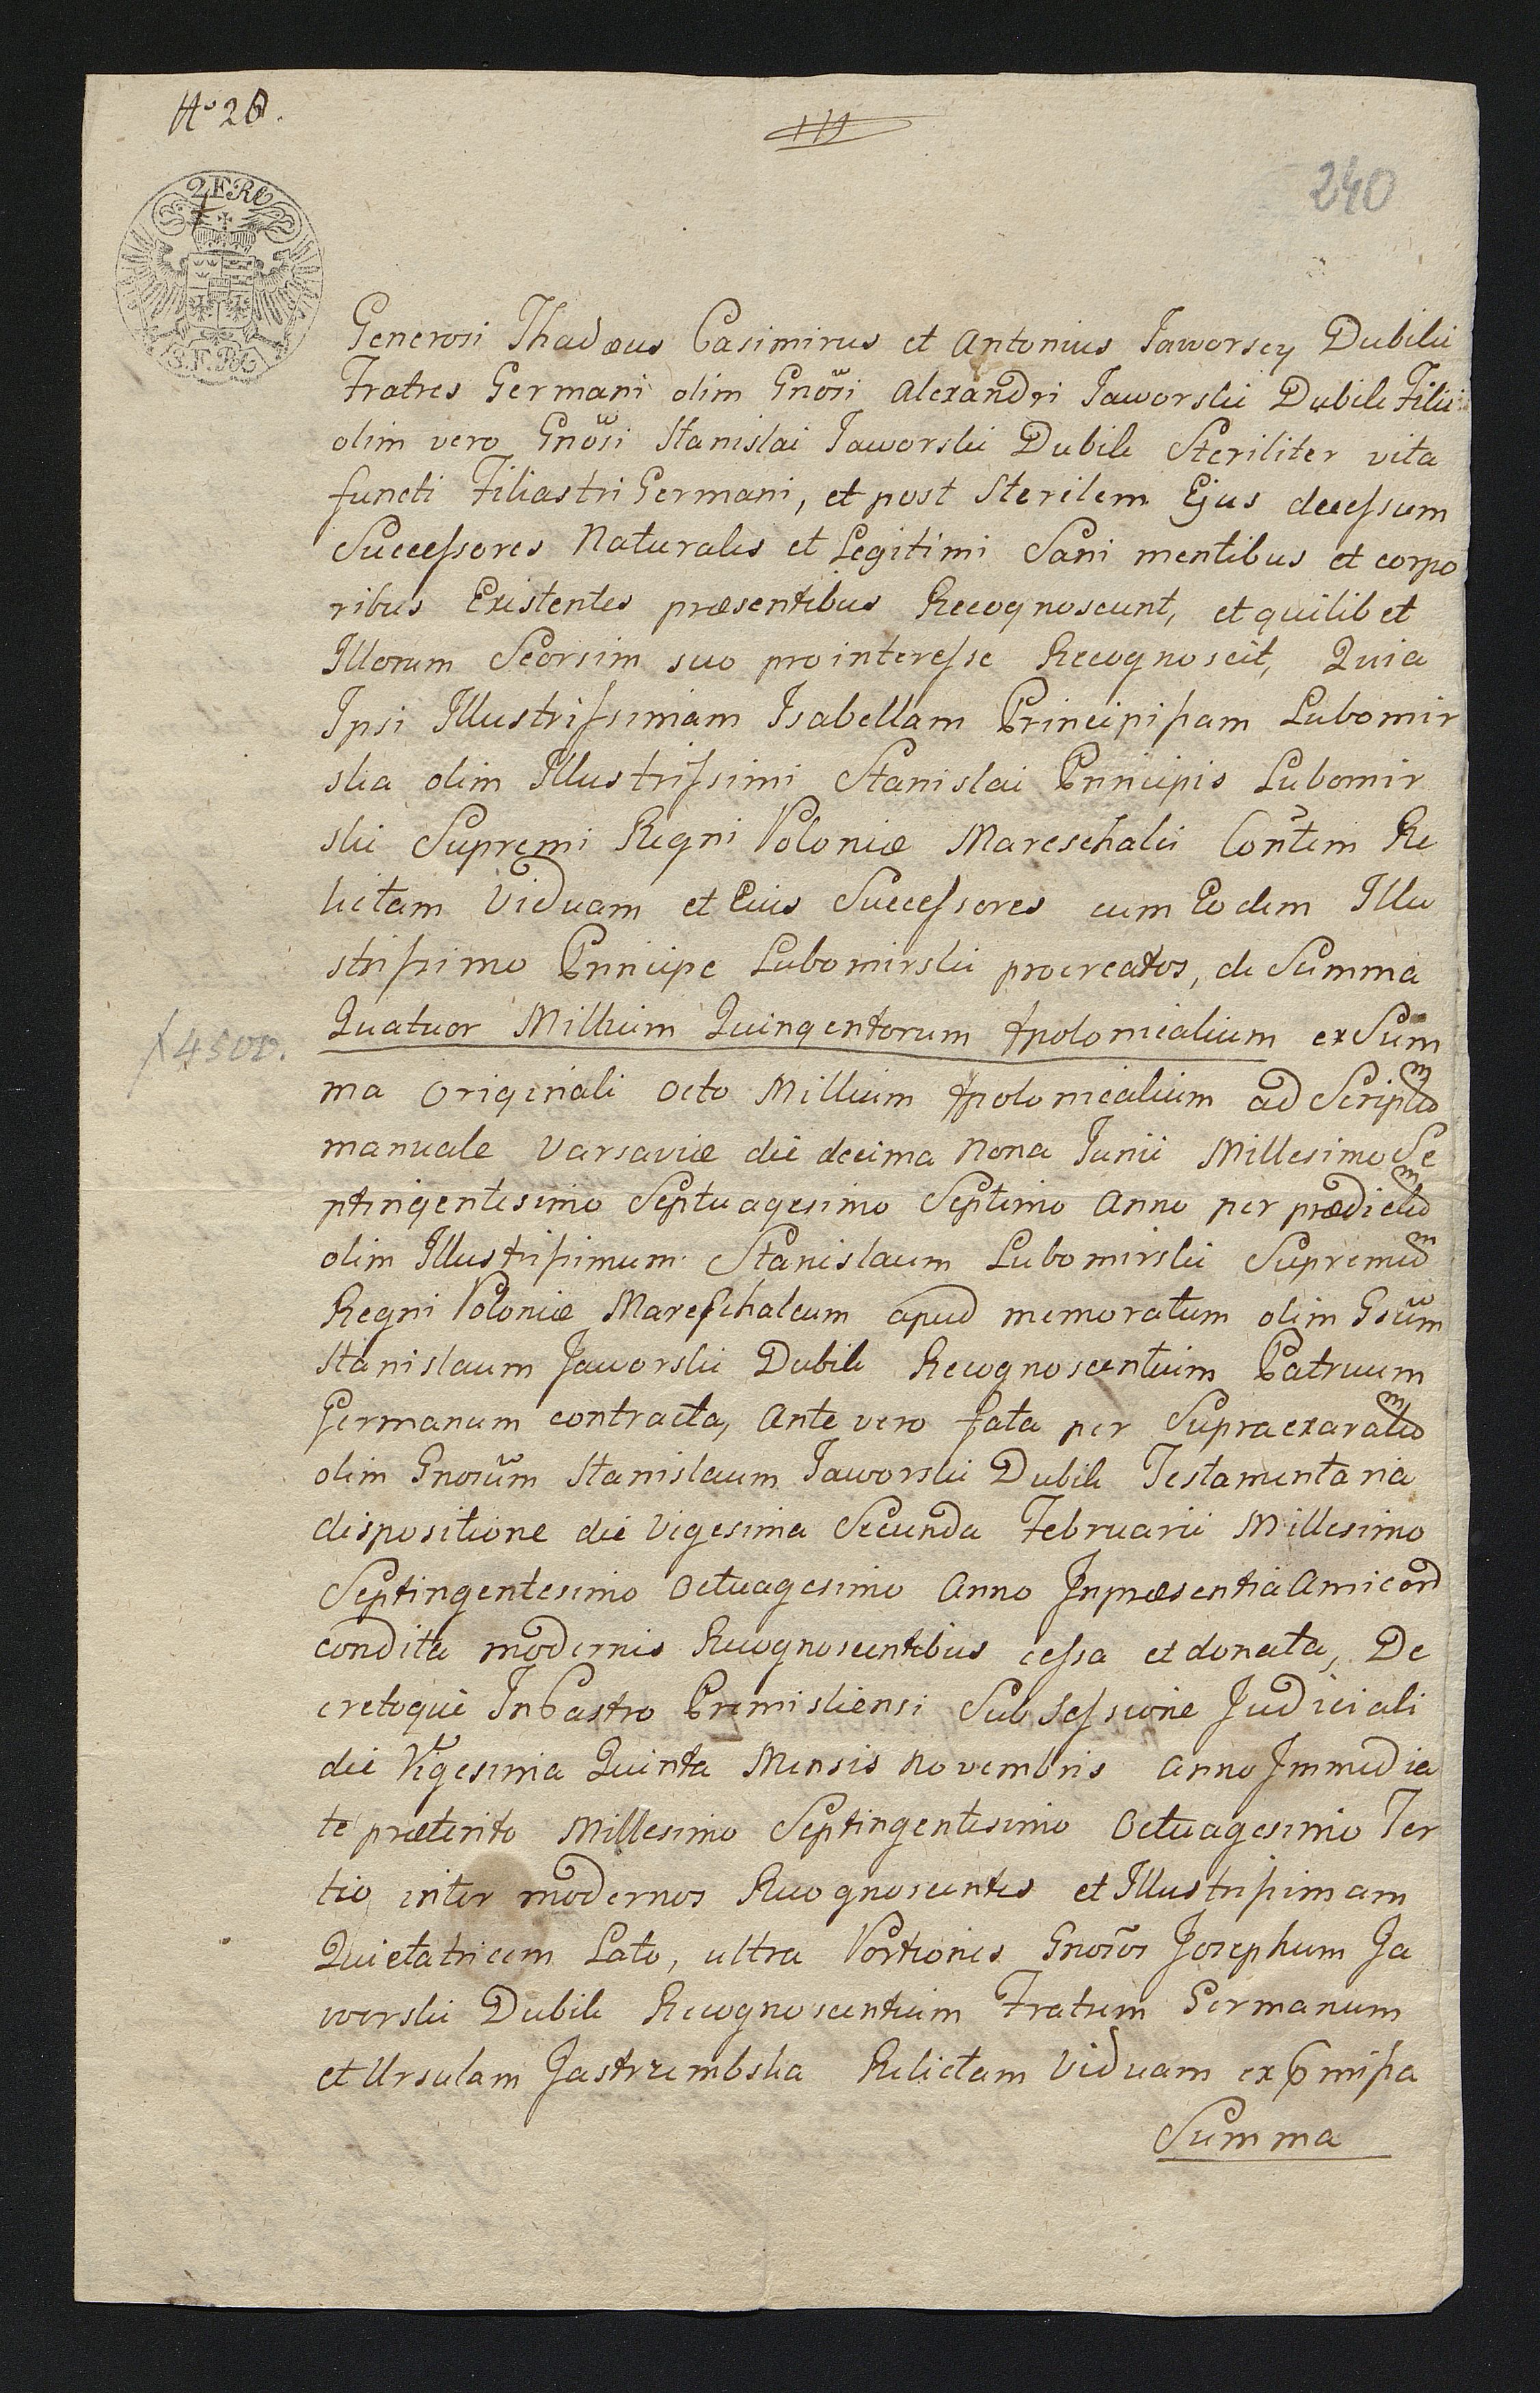 No 20.
240
2 FRC
3. F. RC
Generosi Thadæus Casimirus et Antonius Jaworscy Dubile
Fratres Germani olim Gnõsi Alexandri Jaworski Dubile Filii
olim vero Gnõsi Stanislai Jaworski Dubile Steriliter vita
functi Filiastri Germani, et post Sterilem Ejus decessum
Successores Naturales et Legitimi Sani mentibus et corpo
ribus Existentes præsentibus Recognoscunt, et quilibet
Illorum Seorsim suo pro interesse Recognoscit, Quia
Ipsi Illustrissimam Isabellam Principissam Lubomir
ska olim Illustrissimi Stanislai Principis Lubomir
ski Supremi Regni Poloniæ Mareschalci Cont̃em Re
lictam Viduam et Eius Successores cum Eodem Illu
strissimo Principe Lubomirski procreatos, de Summa
Quatuor Millium Quingentorum fpolonicalium ex Sum
f 4500.
ma Originali Octo Millium fpolonicalium ad Scriptum
manuale Varsaviæ die decima Nona Junii Millesimo Se
ptingentesimo Septuagesimo Septimo Anno per prædictum
olim Illustrissimum Stanislaum Lubomirski Supremum
Regni Poloniæ Mareschalcum apud memoratum olim Gsum
Stanislaum Jaworski Dubile Recognoscentium Patruum
Germanum contracta, Ante vero fata per Supraexaratum
olim Gnosum Stanislaum Jaworski Dubile Testamentaria
dispositione die Vigesima Secunda Februarii Millesimo
Septingentesimo Octuagesimo Anno In præsentia Amicord
condita modernis Recognoscentibus cessa et donata, De
cretoque In Castro Premisliensi Sub Sessione Judiciali
die Vigesima Quinta Mensis Novembris Anno Immedia
te præterito Millesimo Septingentesimo Octuagesimo Ter
tio inter modernos Recognoscentes et Illustrissimam
Quietatricem Lato, ultra Portiones Gnosos Josephum Ja
worski Dubile Recognoscentium Fratrem Germanum
et Ursulam Jastrzembska Relictam Viduam ex pmissa
Summa